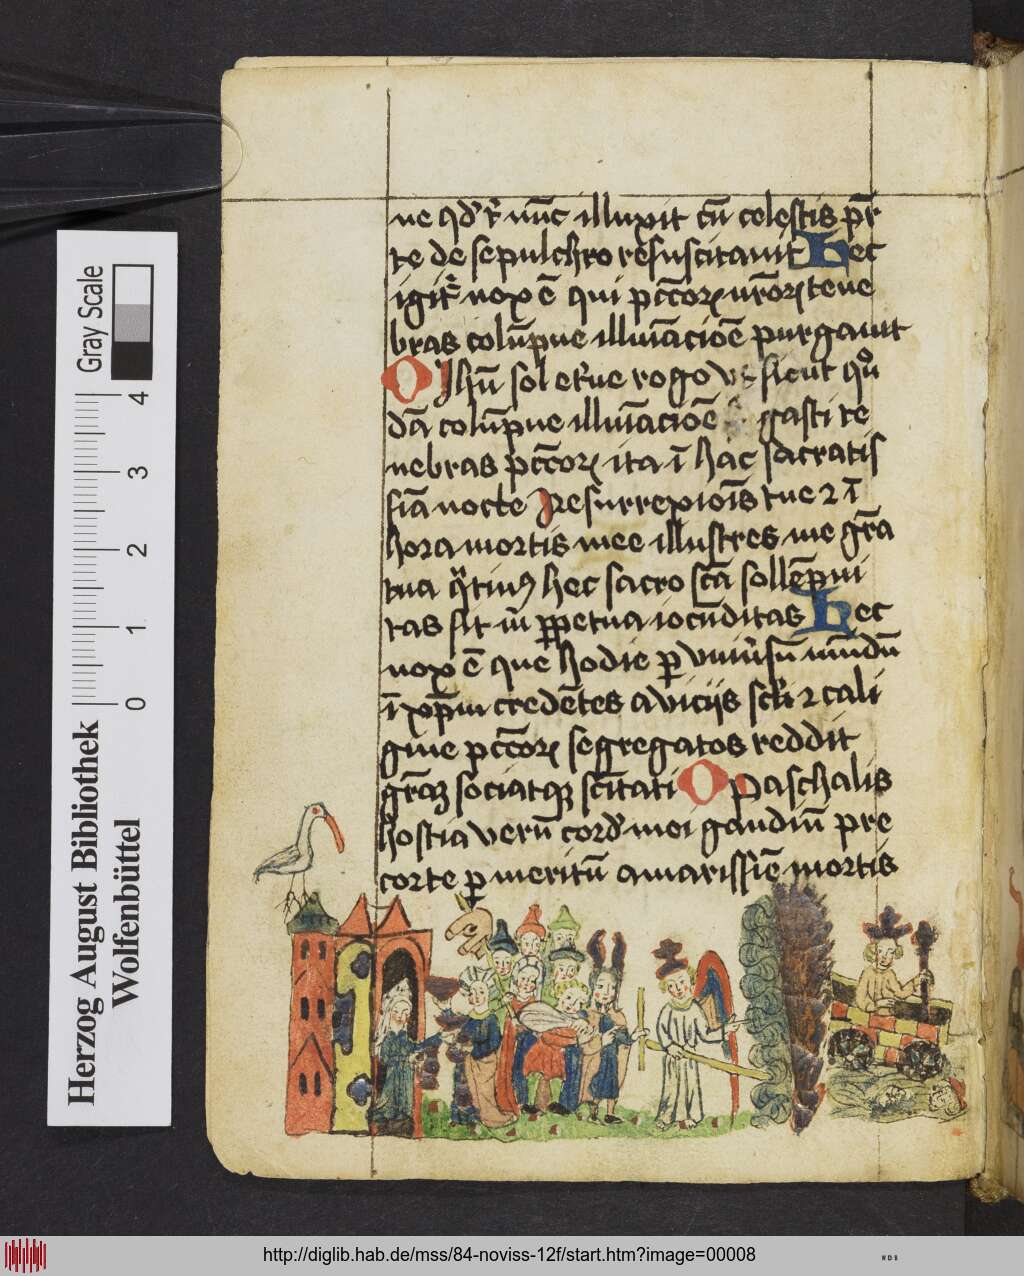 ne qd' r̄ nūc illuxit cū celestis pr̄
te de sepulchro resuscitauit Hec
igit᷑ nox ē qui pctōrꝝ nrōrꝝ tene
bras colūpne illuīacioē purgauit
O Jhū sol et'ne rogo vt sicut quō
dā colūpne illuīacioē gasti te
nebras pctōrꝝ ita ī hac sacratis
sīa nocte Resurrexiōis tue ⁊ ī
hora mortis mee illustres me grā
tua qͣtinꝰ hec sacro scā sollēpni
tas sit in ꝑpetua iocūditas Hec
nox ē que hodie ꝑ vniūsū mūdū
ī xp̄m credētes a viciis scl'i ⁊ cali
gine pctōrꝝ segregatos reddit
grāꝫ sociatqꝫ sctītati O Paschalis
hostia verū cord' mei gaudiū pre
corte ꝑ meritū amarissīe mortis
Herzog August Bibliothek
Wolfenbüttel
Gray Scale
0 1 2 3 4
http://diglib.hab.de/mss/84-noviss-12f/start.htm?image=00008